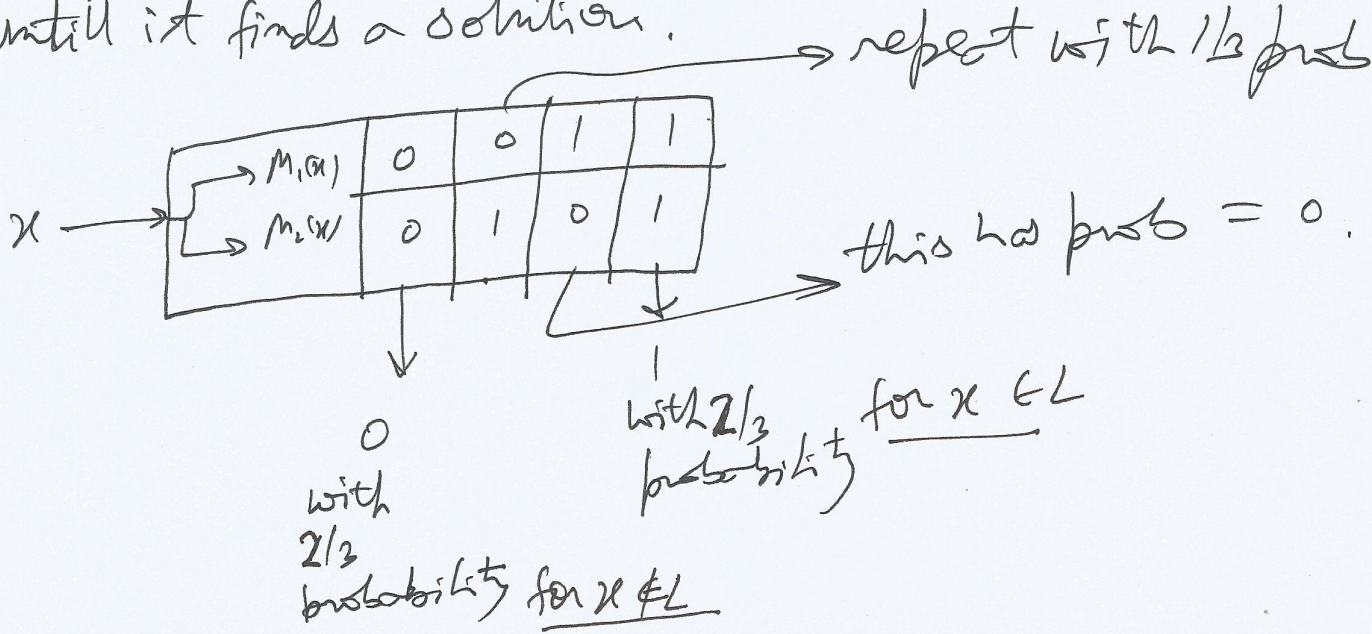 untill it finds a solution.
repeat with 1/3 prob
M₁(x) 0 0 1 1
x
M₂(x) 0 1 0 1
this has prob = 0.
0
with
2/3
probability for x ∉ L
1
with 2/3
probability for x ∈ L